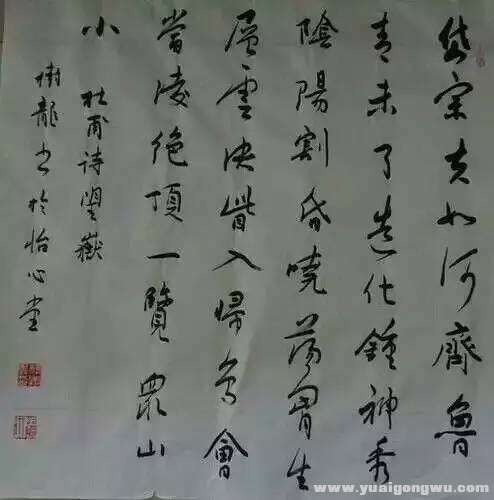 岱宗夫如何齊魯
青未了造化鍾神秀
陰陽割昏曉蕩胷生
層雲決眥入帰鳥會
當凌絶頂一覽眾山
小 杜甫诗望嶽
樹龍书於怡心堂
www.yuaigongwu.com